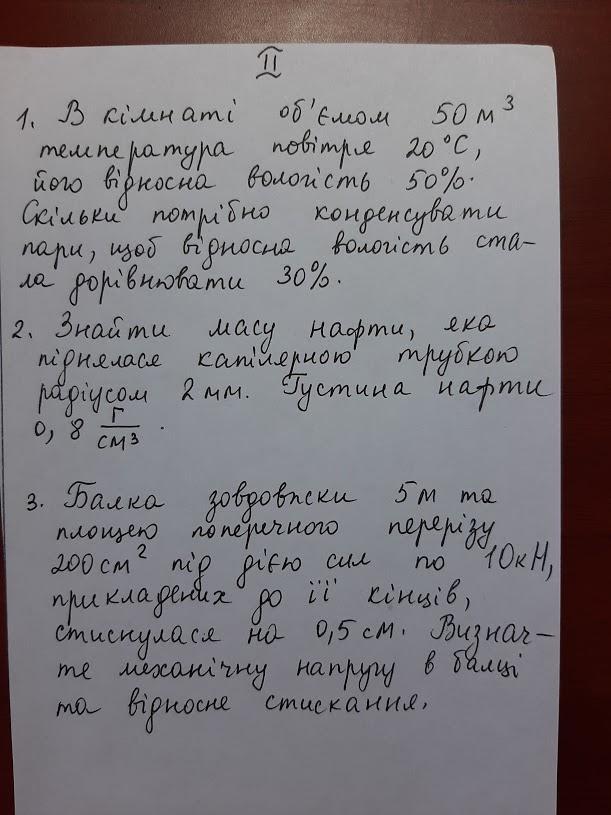 II
1. В кімнаті об'ємом 50 м³
температура повітря 20°С,
його відносна вологість 50%.
Скільки потрібно конденсувати
пари, щоб відносна вологість ста-
ла дорівнювати 30%.
2. Знайти масу нафти, яка
піднялася капілярною трубкою
радіусом 2 мм. Густина нафти
0,8 г/см³.
3. Балка зовдовжки 5м та
площею поперечного перерізу
200см² під дією сил по 10кН,
прикладених до її кінців,
стиснулася на 0,5 см. Визнач-
те механічну напругу в балці
та відносне стискання.